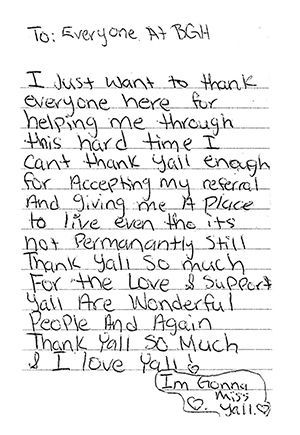 To: Everyone At BGH
I Just want to thank
everyone here for
helping me through
this hard time I
cant thank yall enough
for Accepting my referral
And giving me A Place
to live even tho its
not Permanantly Still
Thank Yall So much
For the Love & Support
Yall Are Wonderful
People And Again
Thank Yall So Much
& I love Yall!
Im Gonna
miss
Yall.